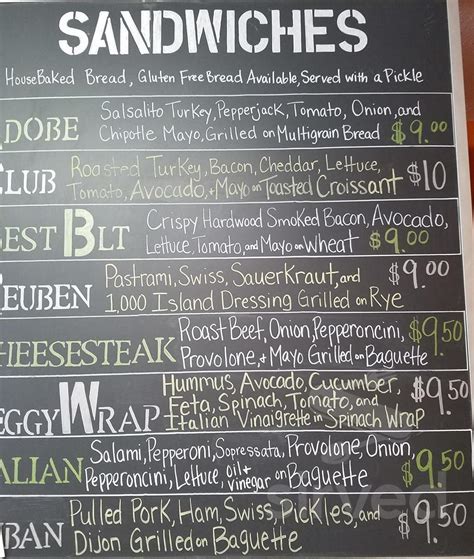 SANDWICHES
HouseBaked Bread, Gluten Free Bread Available, Served with a Pickle
DOBE
Salsalito Turkey, Pepperjack, Tomato, Onion, and
Chipotle Mayo, Grilled on Multigrain Bread $9.00
LUB
Roasted Turkey, Bacon, Cheddar, Lettuce,
Tomato, Avocado, + Mayo on Toasted Croissant $10
EST BLT
Crispy Hardwood Smoked Bacon, Avocado,
Lettuce, Tomato, and Mayo on Wheat $9.00
EUBEN
Pastrami, Swiss, SauerKraut, and
1,000 Island Dressing Grilled on Rye $9.00
HEESESTEAK
Roast Beef, Onion, Pepperoncini,
Provolone, + Mayo Grilled on Baguette $9.50
EGGY WRAP
Hummus, Avocado, Cucumber,
Feta, Spinach, Tomato, and
Italian Vinaigrette in Spinach Wrap $9.50
ALIAN
Salami, Pepperoni, Sopressata, Provolone, Onion,
Pepperoncini, Lettuce, oil + vinegar on Baguette $9.50
BAN
Pulled Pork, Ham, Swiss, Pickles, and
Dijon Grilled on Baguette $9.50
sirved